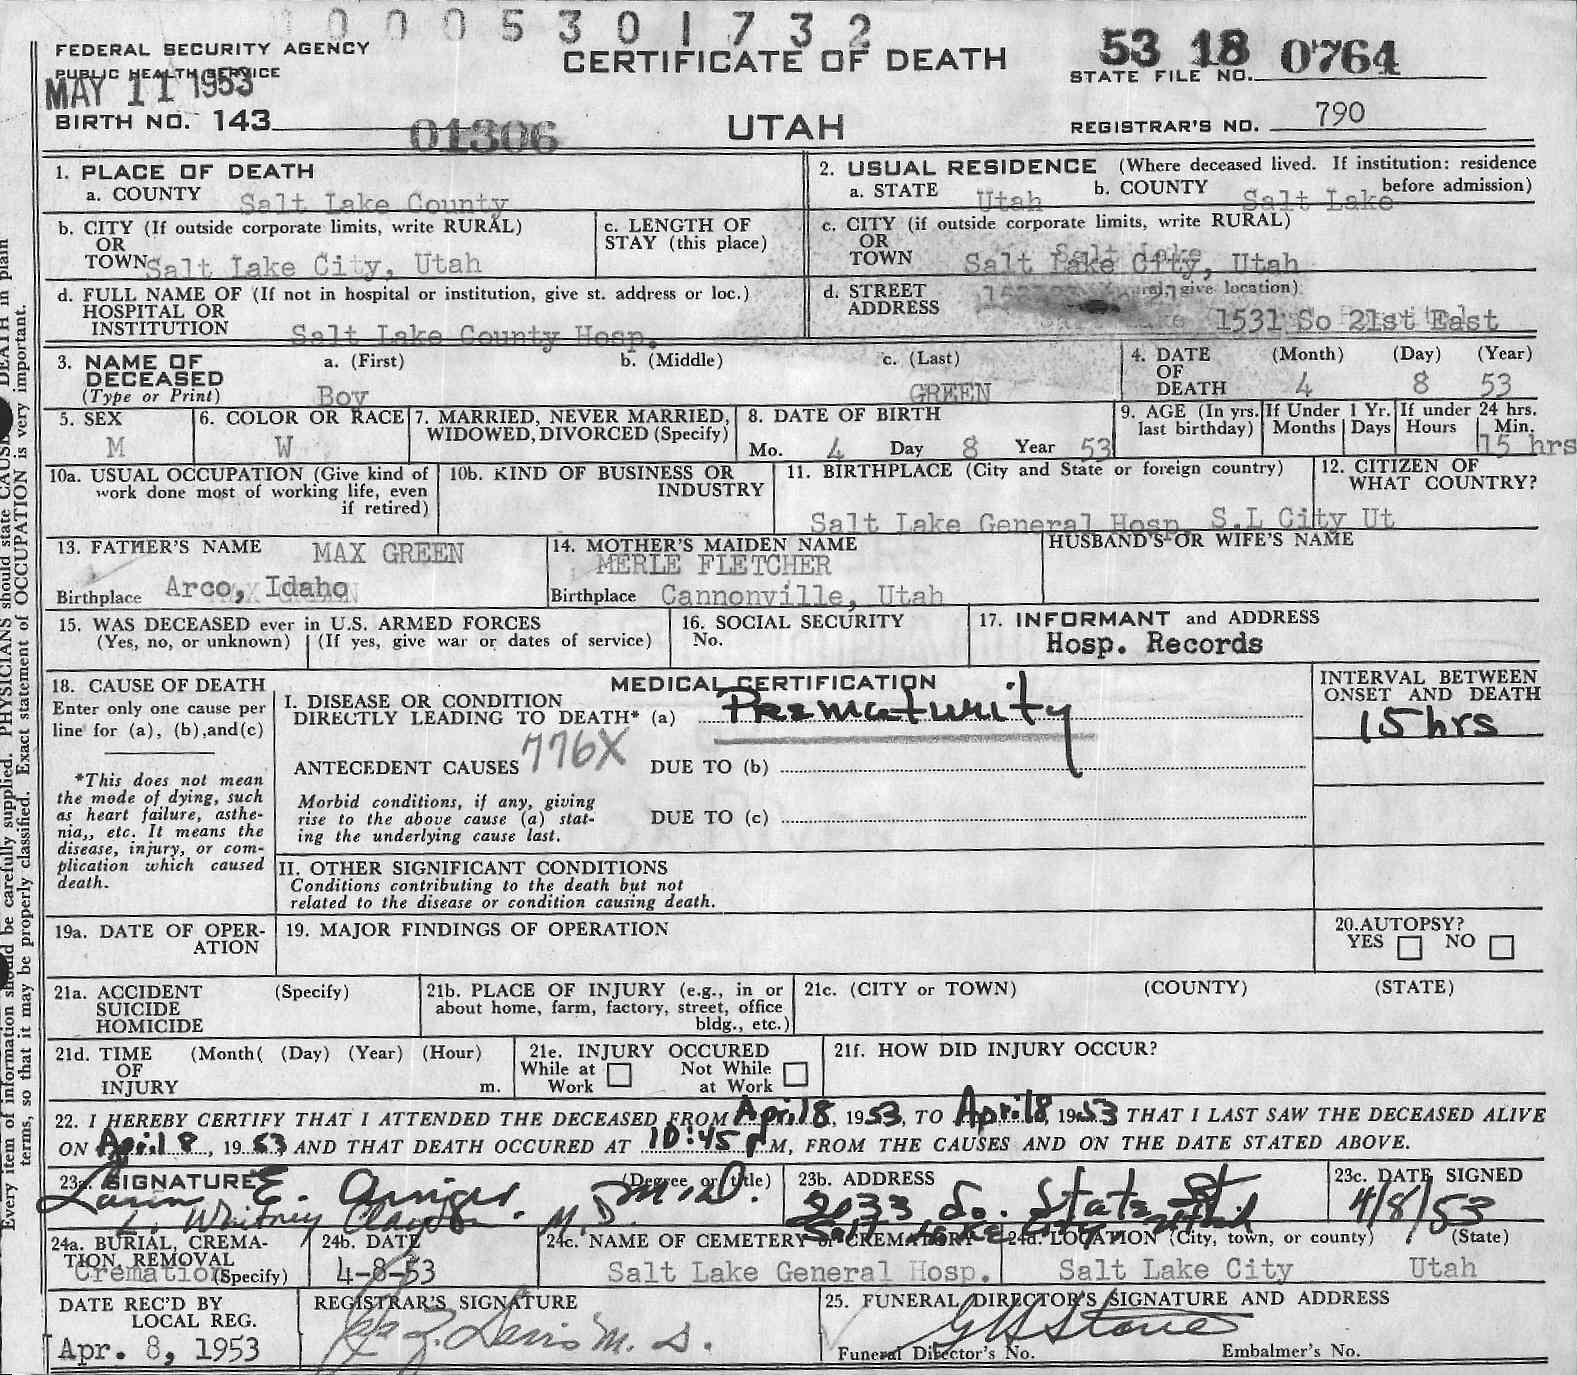 0 0 0 5 3 0 1 7 3 2
FEDERAL SECURITY AGENCY
PUBLIC HEALTH SERVICE
MAY 11 1953
BIRTH NO. 143
01306
CERTIFICATE OF DEATH
UTAH
53 18 0764
STATE FILE NO.
REGISTRAR'S NO. 790
1. PLACE OF DEATH
a. COUNTY Salt Lake County
2. USUAL RESIDENCE (Where deceased lived. If institution: residence before admission)
a. STATE Utah b. COUNTY Salt Lake
b. CITY (If outside corporate limits, write RURAL)
OR
TOWN Salt Lake City, Utah
c. LENGTH OF
STAY (this place)
c. CITY (if outside corporate limits, write RURAL)
OR
TOWN Salt Lake City, Utah
d. FULL NAME OF (If not in hospital or institution, give st. address or loc.)
HOSPITAL OR
INSTITUTION Salt Lake County Hosp.
d. STREET give location)
ADDRESS 1531 So 21st East
3. NAME OF
DECEASED
(Type or Print)
a. (First) b. (Middle) c. (Last)
Boy GREEN
4. DATE
OF
DEATH
(Month) (Day) (Year)
4 8 53
5. SEX
M
6. COLOR OR RACE
W
7. MARRIED, NEVER MARRIED,
WIDOWED, DIVORCED (Specify)
8. DATE OF BIRTH
Mo. 4 Day 8 Year 53
9. AGE (In yrs.
last birthday)
If Under 1 Yr.
Months Days
If under 24 hrs.
Hours Min.
15 hrs
10a. USUAL OCCUPATION (Give kind of
work done most of working life, even
if retired)
10b. KIND OF BUSINESS OR
INDUSTRY
11. BIRTHPLACE (City and State or foreign country)
Salt Lake General Hosp. S.L City Ut
12. CITIZEN OF
WHAT COUNTRY?
13. FATHER'S NAME MAX GREEN
Birthplace Arco, Idaho
14. MOTHER'S MAIDEN NAME
MERLE FLETCHER
Birthplace Cannonville, Utah
HUSBAND'S OR WIFE'S NAME
15. WAS DECEASED ever in U.S. ARMED FORCES
(Yes, no, or unknown) (If yes, give war or dates of service)
16. SOCIAL SECURITY
No.
17. INFORMANT and ADDRESS
Hosp. Records
18. CAUSE OF DEATH
Enter only one cause per
line for (a), (b), and (c)
*This does not mean
the mode of dying, such
as heart failure, asthe-
nia,, etc. It means the
disease, injury, or com-
plication which caused
death.
MEDICAL CERTIFICATION
I. DISEASE OR CONDITION
DIRECTLY LEADING TO DEATH* (a) Prematurity
776X
ANTECEDENT CAUSES DUE TO (b)
Morbid conditions, if any, giving
rise to the above cause (a) stat-
ing the underlying cause last.
DUE TO (c)
II. OTHER SIGNIFICANT CONDITIONS
Conditions contributing to the death but not
related to the disease or condition causing death.
INTERVAL BETWEEN
ONSET AND DEATH
15 hrs
19a. DATE OF OPER-
ATION
19. MAJOR FINDINGS OF OPERATION
20. AUTOPSY?
YES NO
21a. ACCIDENT (Specify)
SUICIDE
HOMICIDE
21b. PLACE OF INJURY (e.g., in or
about home, farm, factory, street, office
bldg., etc.)
21c. (CITY or TOWN) (COUNTY) (STATE)
21d. TIME (Month( (Day) (Year) (Hour)
OF
INJURY m.
21e. INJURY OCCURED
While at Not While
Work at Work
21f. HOW DID INJURY OCCUR?
22. I HEREBY CERTIFY THAT I ATTENDED THE DECEASED FROM April 8, 1953, TO April 8, 1953 THAT I LAST SAW THE DECEASED ALIVE
ON April 8, 1953 AND THAT DEATH OCCURED AT 10:45 P M, FROM THE CAUSES AND ON THE DATE STATED ABOVE.
23a. SIGNATURE (Degree or title)
E. M.D.
L. Whitney Clayton M.D.
23b. ADDRESS
2033 So. State St
Salt Lake City Utah
23c. DATE SIGNED
4/8/53
24a. BURIAL, CREMA-
TION, REMOVAL
Cremation (Specify)
24b. DATE
4-8-53
24c. NAME OF CEMETERY or CREMATORY
Salt Lake General Hosp.
24d. LOCATION (City, town, or county) (State)
Salt Lake City Utah
DATE REC'D BY
LOCAL REG.
Apr. 8, 1953
REGISTRAR'S SIGNATURE
M. D.
25. FUNERAL DIRECTOR'S SIGNATURE AND ADDRESS
Stone
Funeral Director's No. Embalmer's No.
Every item of information should be carefully supplied. PHYSICIANS should state CAUSE DEATH in plain
terms, so that it may be properly classified. Exact statement of OCCUPATION is very important.